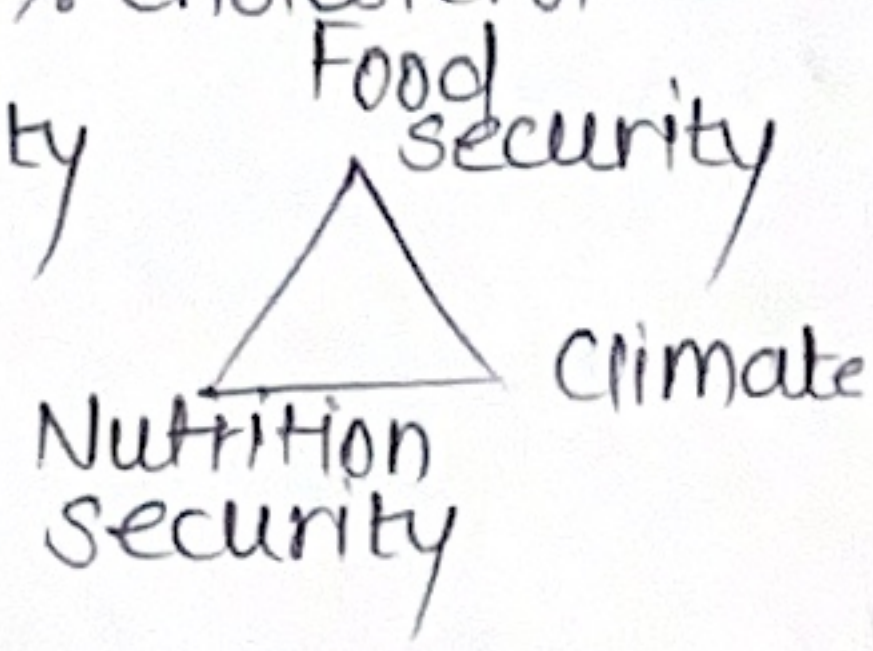 Food
security
ty
Climate
Nutrition
security